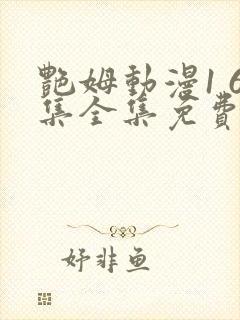 艷姆動漫1 6
集全集免費
妤非鱼